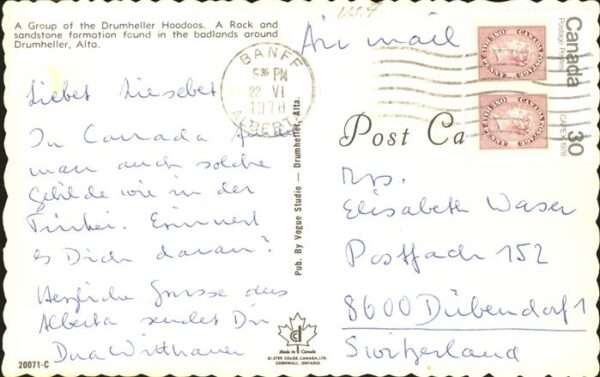 A Group of the Drumheller Hoodoos. A Rock and
sandstone formation found in the badlands around
Drumheller, Alta.
Air mail
BANFF
PM
22 VI
1978
ALBERTA
Canada
30
Postage
CAPEX 1978
Post Ca
Pub. By Vogue Studio — Drumheller, Alta.
In Canada
man auch solche
Gebilde wie in der
Türkei. Erinnerst
Dich daran?
Herzliche Grüsse aus
Alberta sendet Dir
Mrs.
Elisabeth Waser
Postfach 152
8600 Dübendorf 1
Switzerland
Made in Canada
20071-C